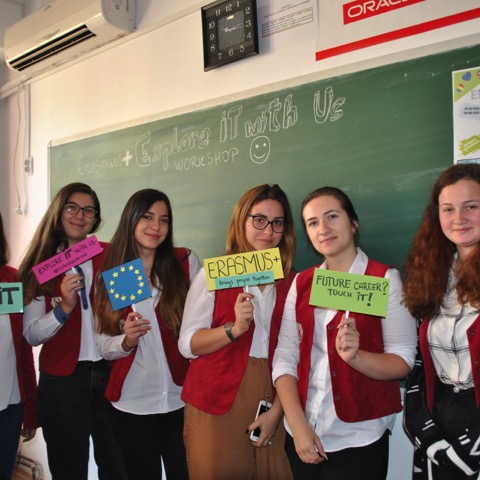 ORACLE
Erasmus+ Explore iT with Us
WORKSHOP
iT
EXPLORE IT WITH US
ERASMUS+
brings people together
FUTURE CAREER?
TOUCH iT!